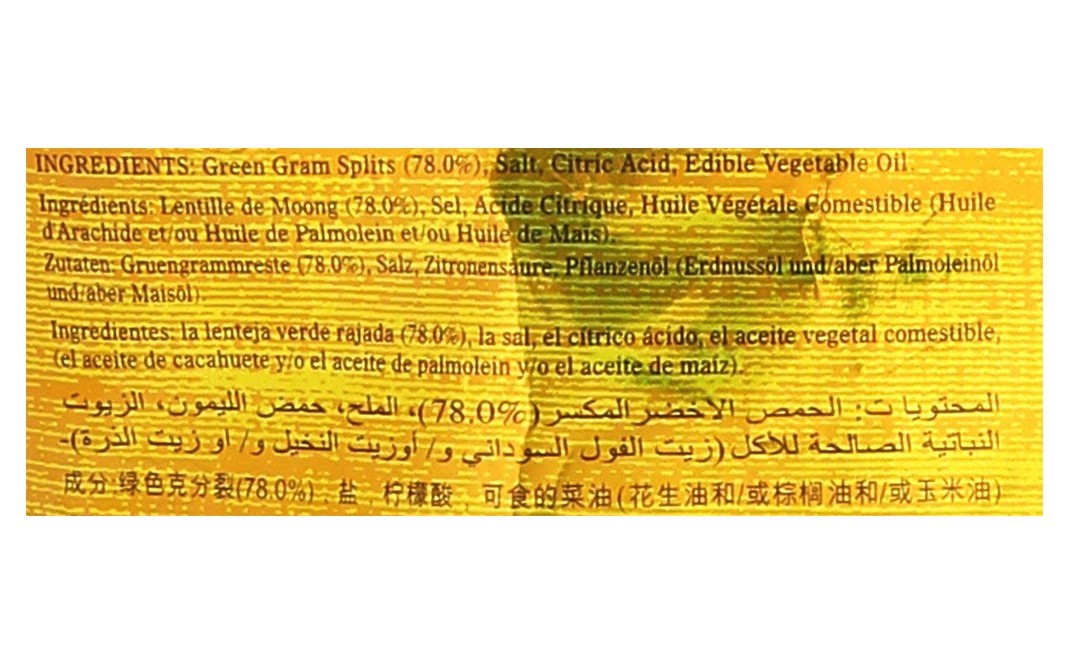 INGREDIENTS: Green Gram Splits (78.0%), Salt, Citric Acid, Edible Vegetable Oil.
Ingrédients: Lentille de Moong (78.0%), Sel, Acide Citrique, Huile Végétale Comestible (Huile
d'Arachide et/ou Huile de Palmolein et/ou Huile de Mais).
Zutaten: Gruengrammreste (78.0%), Salz, Zitronensäure, Pflanzenöl (Erdnussöl und/aber Palmoleinöl
und/aber Maisöl).
Ingredientes: la lenteja verde rajada (78.0%), la sal, el cítrico ácido, el aceite vegetal comestible,
(el aceite de cacahuete y/o el aceite de palmolein y/o el aceite de maíz).
المحتويا ت: الحمص الاخضر المكسر (78.0%)، الملح، حمض الليمون، الزيوت
النباتية الصالحة للأكل (زيت الفول السوداني و/ أوزيت النخيل و/ او زيت الذرة)-
成分:绿色克分裂(78.0%) , 盐 , 柠檬酸 , 可食的菜油(花生油和/或棕榈油和/或玉米油)